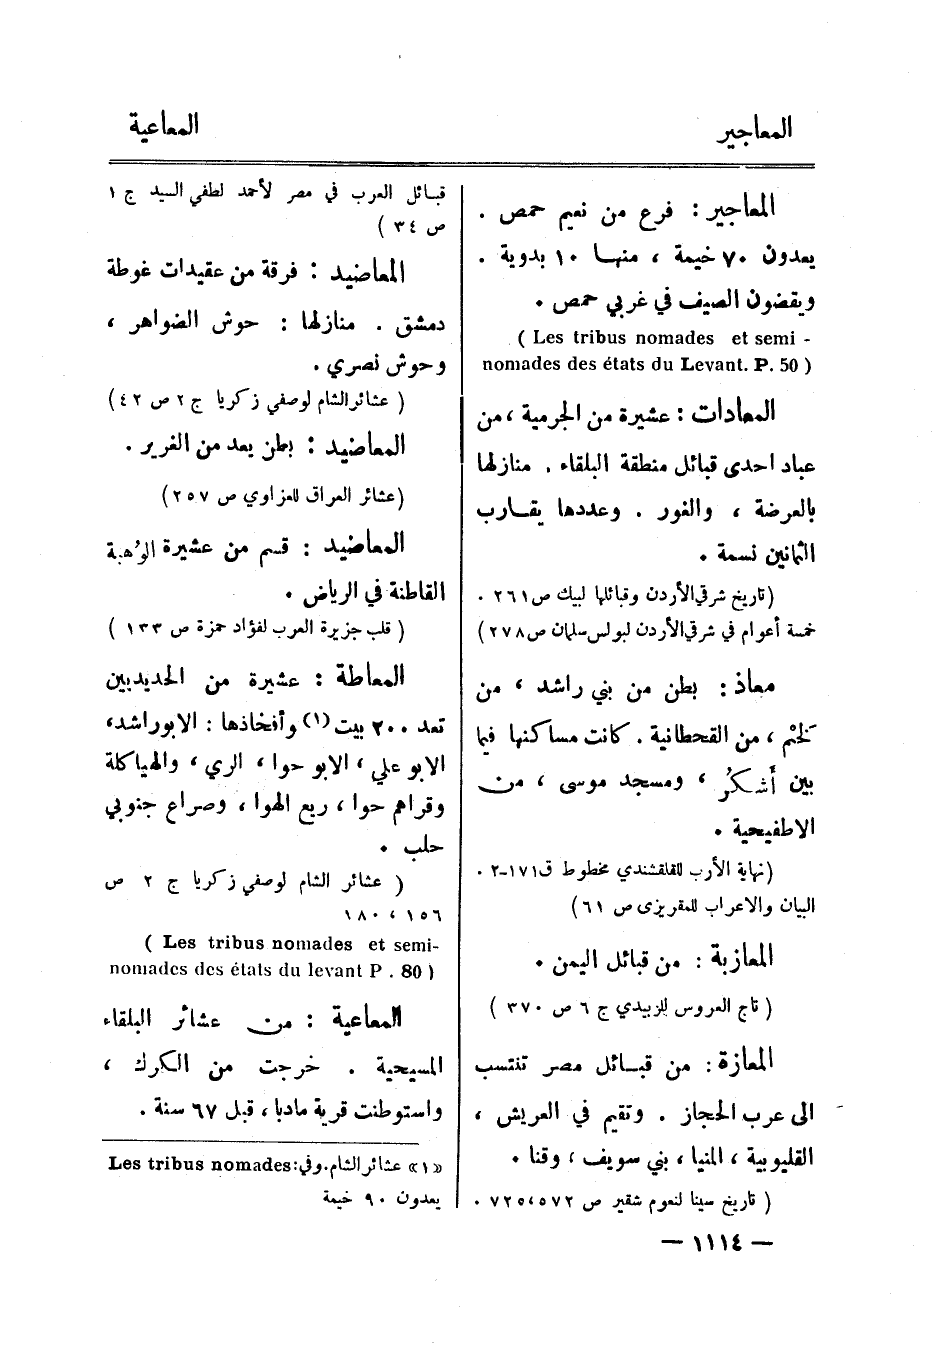 المعاجير
المعاعية
المعاجير : فرع من نعيم حمص .
يعدون ٧٠ خيمة ، منها ١٠ بدوية .
ويقضون الصيف في غربي حمص .
( Les tribus nomades et semi -
nomades des états du Levant. P. 50 )
المعادات : عشيرة من الجرمية ، من
عباد احدى قبائل منطقة البلقاء . منازلها
بالعرضة ، والغور . وعددها يقارب
الثمانين نسمة .
(تاريخ شرقي الأردن وقبائلها لبيك ص ٢٦١ .
خمسة أعوام في شرقي الأردن لبولس سلمان ص ٢٧٨)
معاذ : بطن من بني راشد ، من
لَخْم ، من القحطانية . كانت مساكنها فيما
بين أَشكُر ، ومسجد موسى ، من
الاطفيحية .
(نهاية الأرب للقلقشندي مخطوط ق ١٧١-٢ .
البيان والاعراب للمقريزى ص ٦١)
المعازبة : من قبائل اليمن .
( تاج العروس للزبيدي ج ٦ ص ٣٧٠ )
المعازة : من قبائل مصر تنتسب
الى عرب الحجاز . وتقيم في العريش ،
القليوبية ، المنيا ، بني سويف ، وقنا .
( تاريخ سينا لنعوم شقير ص ٥٧٢ ، ٧٢٥ .
قبائل العرب في مصر لأحمد لطفي السيد ج ١
ص ٣٤ )
المعاضيد : فرقة من عقيدات غوطة
دمشق . منازلها : حوش الضواهر ،
وحوش نصري .
( عشائر الشام لوصفي زكريا ج ٢ ص ٤٢)
المعاضيد : بطن يعد من الغرير .
(عشائر العراق للعزاوي ص ٢٥٧)
المعاضيد : قسم من عشيرة الوُهبة
القاطنة في الرياض .
( قلب جزيرة العرب لفؤاد حمزة ص ١٣٣ )
المعاطة : عشيرة من الحديديين
تعد ٢٠٠ بيت (١) وأفخاذها : الابو راشد ،
الابو علي ، الابو حوا ، الري ، والهياكلة
وقراهم حوا ، ربع الهوا ، وصراع جنوبي
حلب .
( عشائر الشام لوصفي زكريا ج ٢ ص
١٥٦ ، ١٨٠
( Les tribus nomades et semi-
nomades des états du levant P . 80 )
المعاعية : من عشائر البلقاء
المسيحية . خرجت من الكرك ،
واستوطنت قرية مادبا ، قبل ٦٧ سنة .
«١» عشائر الشام . وفي : Les tribus nomades
يعدون ٩٠ خيمة
— ١١١٤ —